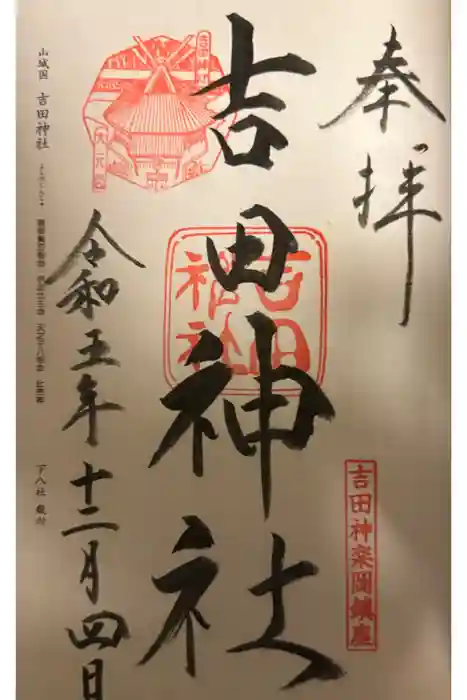 奉拝
吉田神社
吉田神社
吉田神楽岡鎮座
大元宮
令和五年十二月四日
山城国 吉田神社
下八社